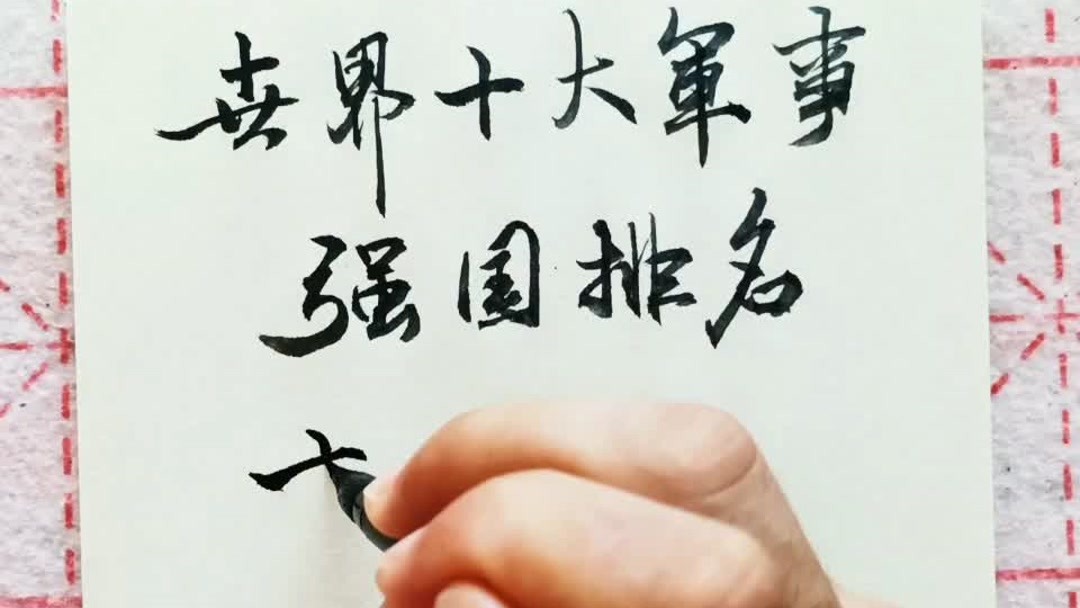 世界十大軍事
强国排名